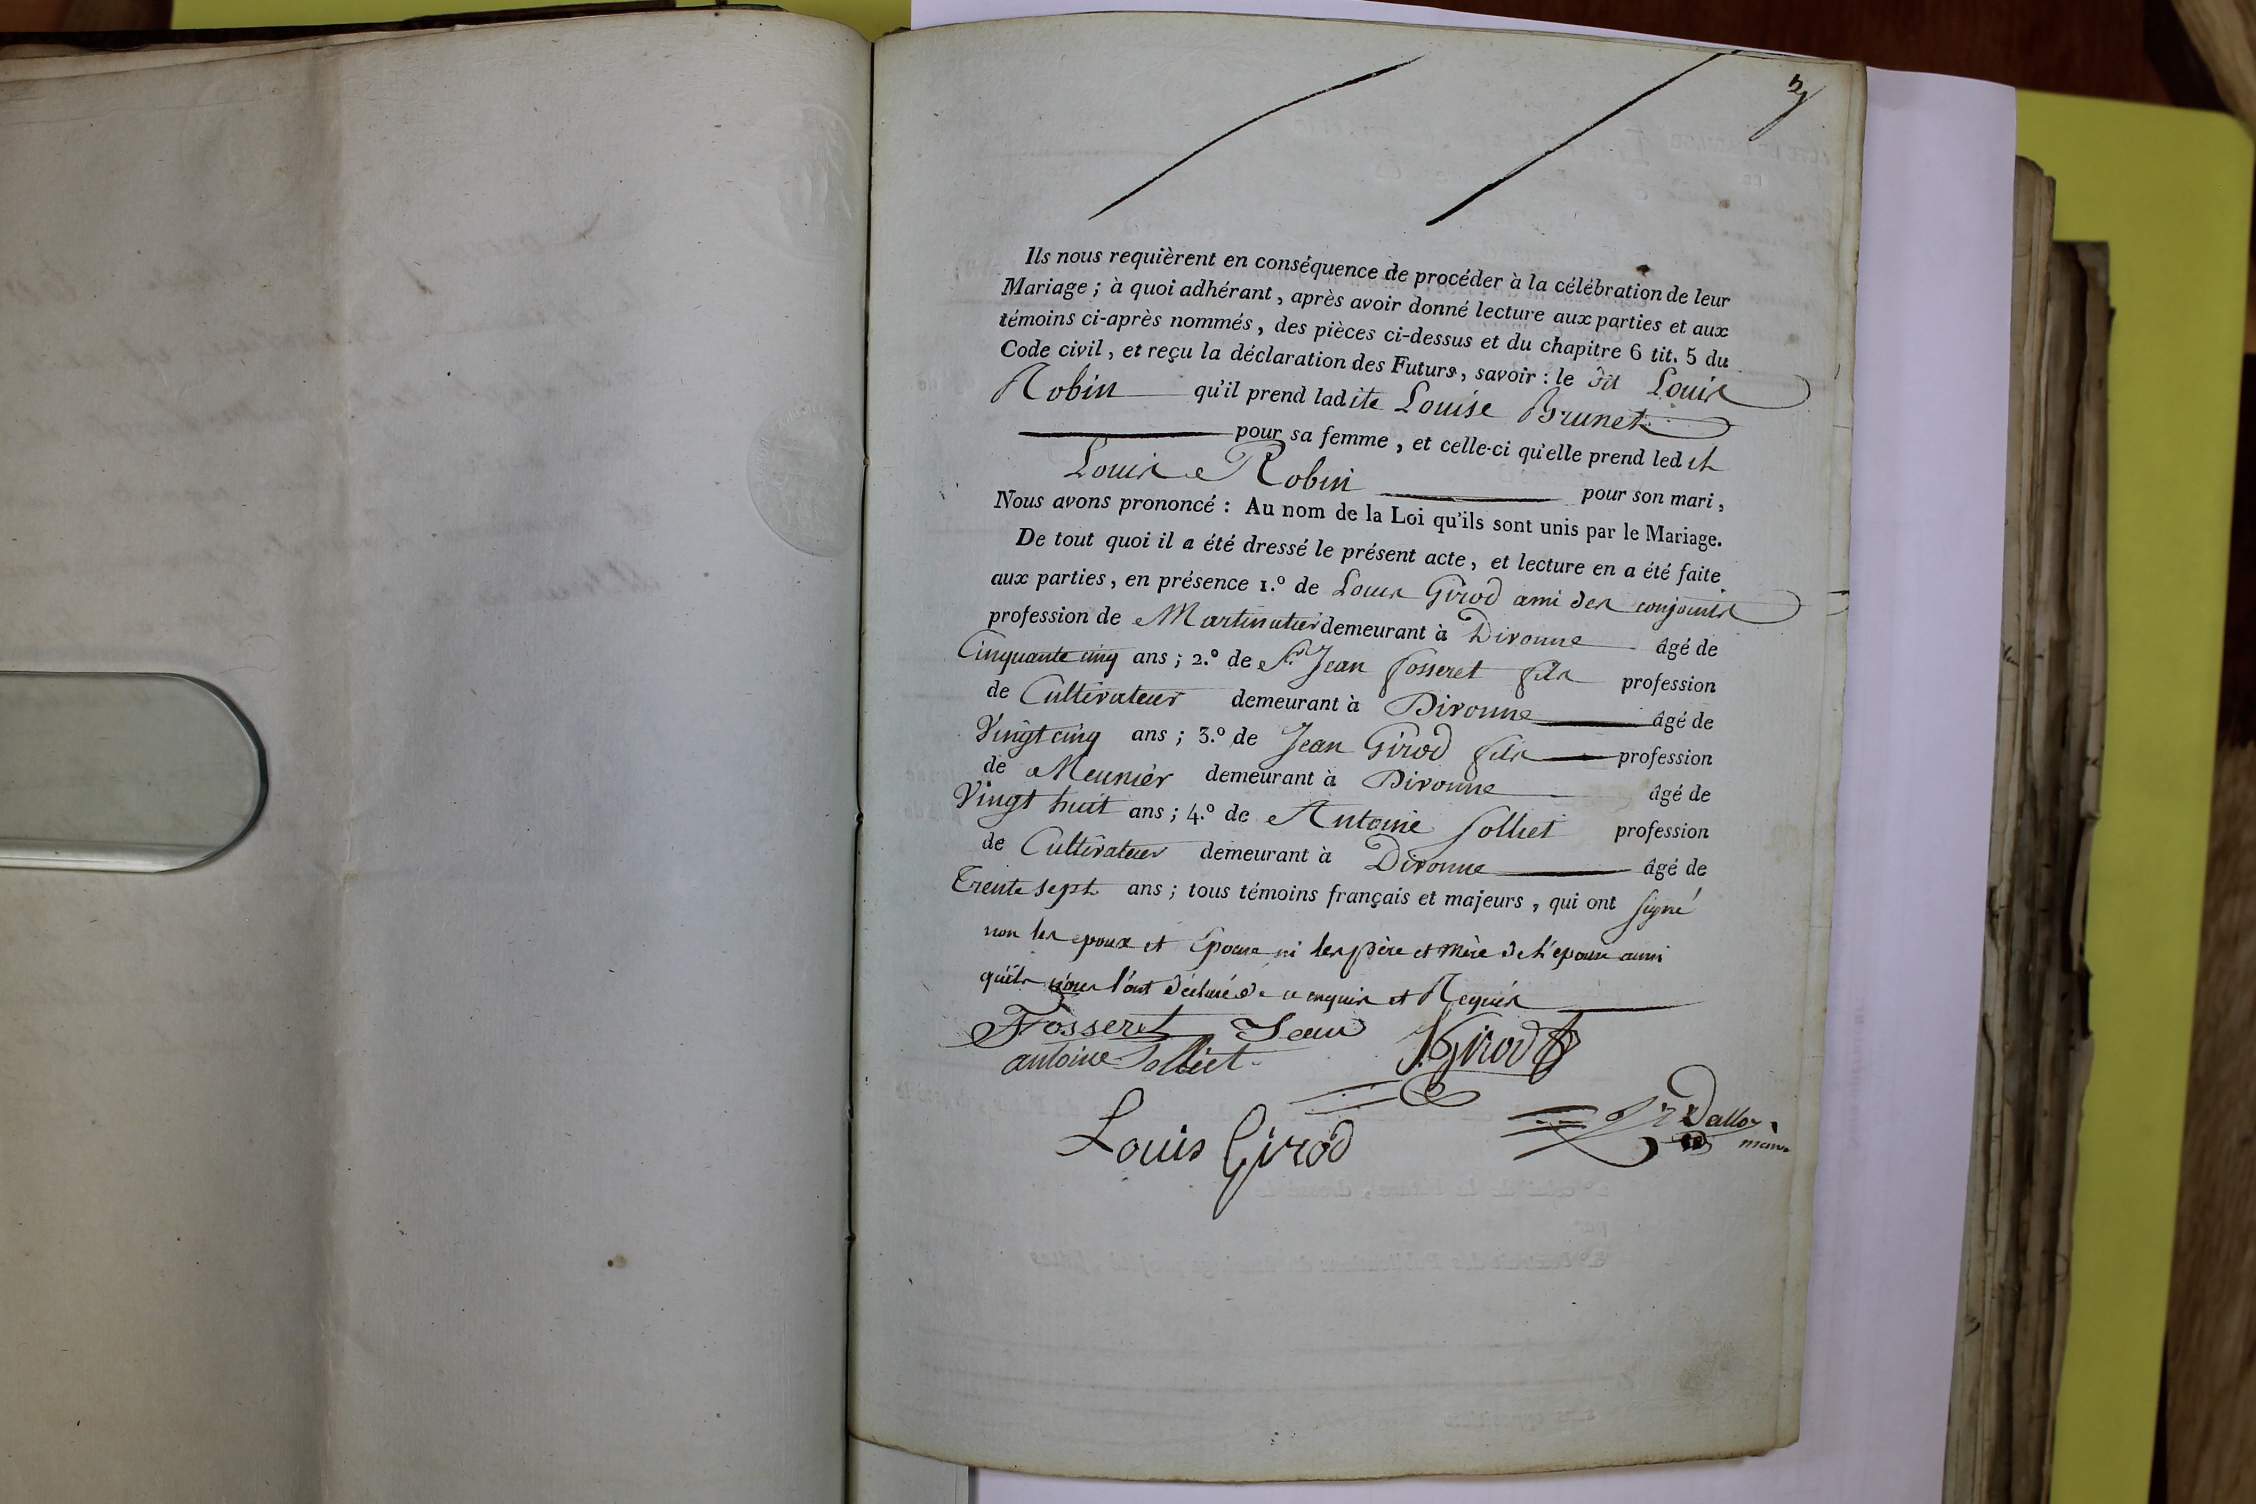 Ils nous requièrent en conséquence de procéder à la célébration de leur
Mariage ; à quoi adhérant, après avoir donné lecture aux parties et aux
témoins ci-après nommés, des pièces ci-dessus et du chapitre 6 tit. 5 du
Code civil, et reçu la déclaration des Futurs, savoir : le dit Louis
Robin qu'il prend ladite Louise Brunet
pour sa femme, et celle-ci qu'elle prend ledit
Louis Robin pour son mari,
Nous avons prononcé : Au nom de la Loi qu'ils sont unis par le Mariage.
De tout quoi il a été dressé le présent acte, et lecture en a été faite
aux parties, en présence 1.º de Louis Girod ami des conjoints
profession de Martinatier demeurant à Divonne âgé de
Cinquante cinq ans ; 2.º de Sr. Jean fosseret fils profession
de Cultivateur demeurant à Divonne âgé de
Vingt cinq ans ; 3.º de Jean Girod fils profession
de Meunier demeurant à Divonne âgé de
Vingt huit ans ; 4.º de Antoine Solliet profession
de Cultivateur demeurant à Divonne âgé de
Trente sept ans ; tous témoins français et majeurs, qui ont signé
non les epoux et Epouse ni les père et mère de l'epouse ainsi
qu'ils nous l'ont déclaré de ce enquis et Requis
Fosseret Jean J. Girod
antoine Solliet
Louis Girod